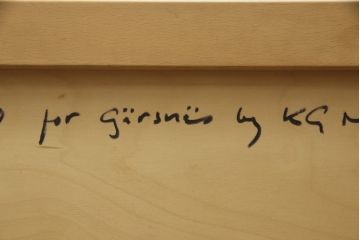 for Gärsnäs by KG